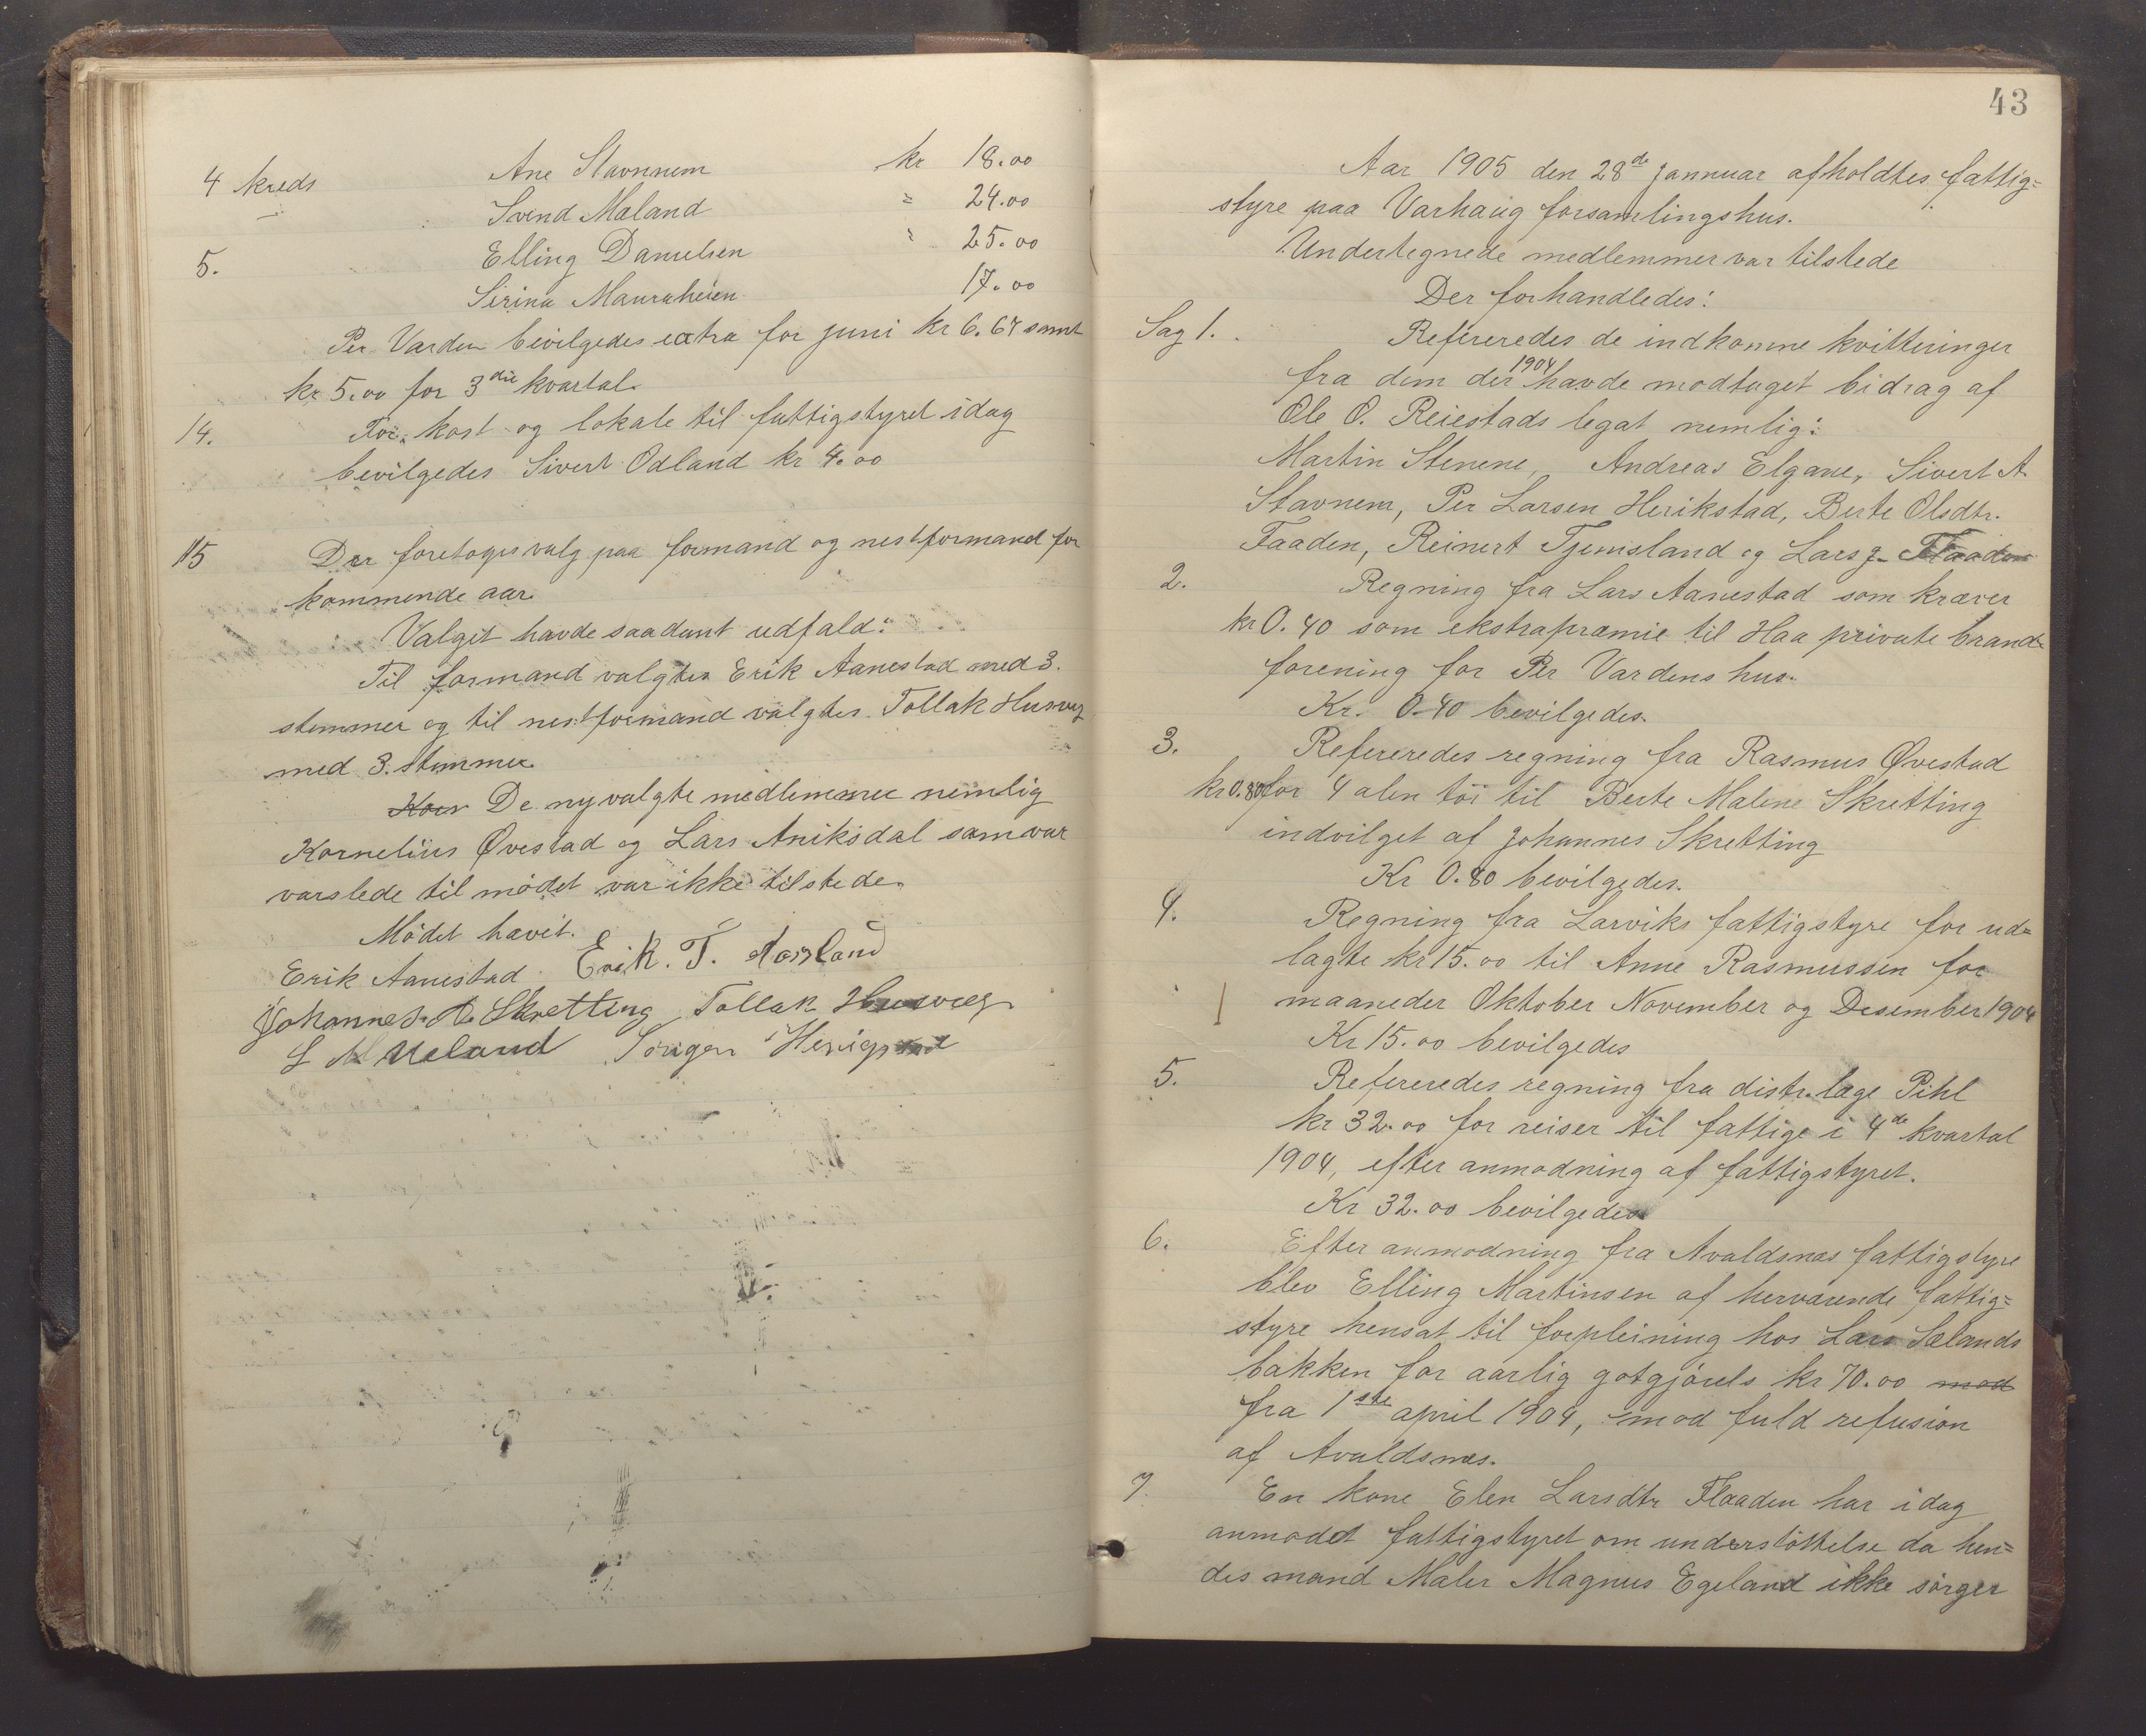 4 kreds Ane Stavnnem kr 18.00
Svend Maland " 24.00
5. Elling Danielsen " 25.00
Sirina Mauraheien 17.00
Per Varden bevilgedes extra for juni kr 6.67 samt
kr 5.00 for 3die kvartal.
14. For kost og lokale til fattigstyret idag
bevilgedes Sivert Odland kr 4.00
15 Der foretoges valg paa formand og nestformand for
kommende aar.
Valget havde saadant udfald:
Til formand valgtes Erik Aanestad med 3.
stemmer og til nestformand valgtes Tollak Husveg
med 3. stemmer.
De nyvalgte medlemmer nemlig
Kornelius Øvestad og Lars Aniksdal som var
varslede til mödet var ikke tilstede.
Mödet hævet.
Erik Aanestad Erik. T. Aarsland
Johannes. A. Skretting Tollak Husveg
L M Ueland
43
Aar 1905 den 28de Jannuar afholdtes fattig=
styre paa Varhaug forsamlingshus.
Undertegnede medlemmer var tilstede
Der forhandledes:
Sag 1. Refereredes de indkomne kvitteringer
fra dem der 1904 havde modtaget bidrag af
Ole O. Reiestads legat nemlig:
Martin Stenene, Andreas Elgane, Sivert A.
Stavnem, Per Larsen Herikstad, Berte Olsdtr.
Faaden, Reinert Tjemsland og Lars J. Flaaden
2. Regning fra Lars Aanestad som kræver
kr 0.40 som ekstrapræmie til Haa private brand=
forening for Per Vardens hus.
Kr. 0.40 bevilgedes.
3. Refereredes regning fra Rasmus Øvestad
kr 0.80 for 4 alen töi til Berte Malene Skretting
indvilget af Johannes Skretting
Kr 0.80 bevilgedes.
4. Regning fra Larviks fattigstyre for ud=
lagte kr 15.00 til Anne Rasmussen for
maaneder Oktober November og Desember 1904
Kr 15.00 bevilgedes
5. Refereredes regning fra distr. læge Pihl
kr 32.00 for reiser til fattige i 4de kvartal
1904, efter anmodning af fattigstyret.
Kr 32.00 bevilgedes
6. Efter anmodning fra Avaldsnæs fattigstyre
blev Elling Martinsen af herværende fattig=
styre hensat til forpleining hos Lars Sælands
bakken for aarlig gotgjörels kr 70.00 mod
fra 1ste april 1904, mod fuld refusion
af Avaldsnæs.
7. En kone Elen Larsdtr Flaaden har idag
anmodet fattigstyret om understöttelse da hen=
des mand Maler Magnus Egeland ikke sörger